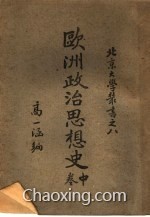 北京大學叢書之八
歐洲政治思想史
中卷
高一涵編
Chaoxing.com